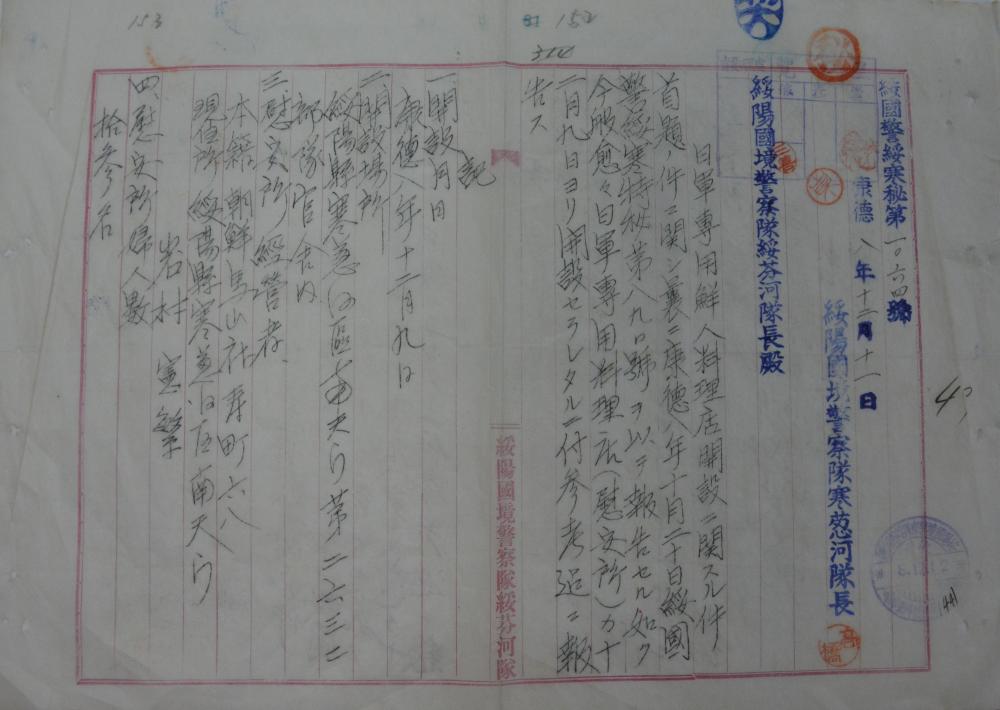 153
152
綏國警綏寒秘第一〇六四號
康德八年十二月十一日
綏陽國境警察隊寒葱河隊長
綏陽國境警察隊綏芬河隊長殿
日軍専用鮮人料理店開設ニ関スル件
首題ノ件ニ関シ曩ニ康徳八年十月二十日綏國
警綏寒特秘第八九〇號ヲ以テ報告セル如ク
今般愈々日軍専用料理店(慰安所)カ十
二月九日ヨリ開設セラレタルニ付参考迄ニ報
告ス
記
一開設月日
康德八年十二月九日
二開設場所
綏陽縣寒葱河區南天門第二六三二
部隊官舎内
三慰安所経営者
本籍朝鮮馬山社寿町六八
現住所綏陽縣寒葱河區南天門
岩村
四慰安所婦人數
拾参名
綏陽國境警察隊綏芬河隊